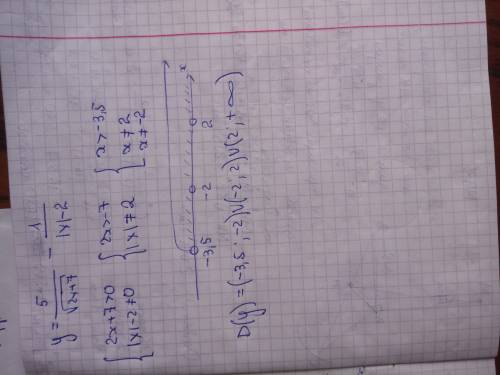 y = 5/√(2x+7) − 1/(|x|−2)
{2x+7>0 {2x>−7 {x>−3,5
{|x|−2≠0 {|x|≠2 {x≠2
x≠−2
−3,5 −2 2 x
D(y)=(−3,5 ; −2)∪(−2 ; 2)∪(2 ; +∞)